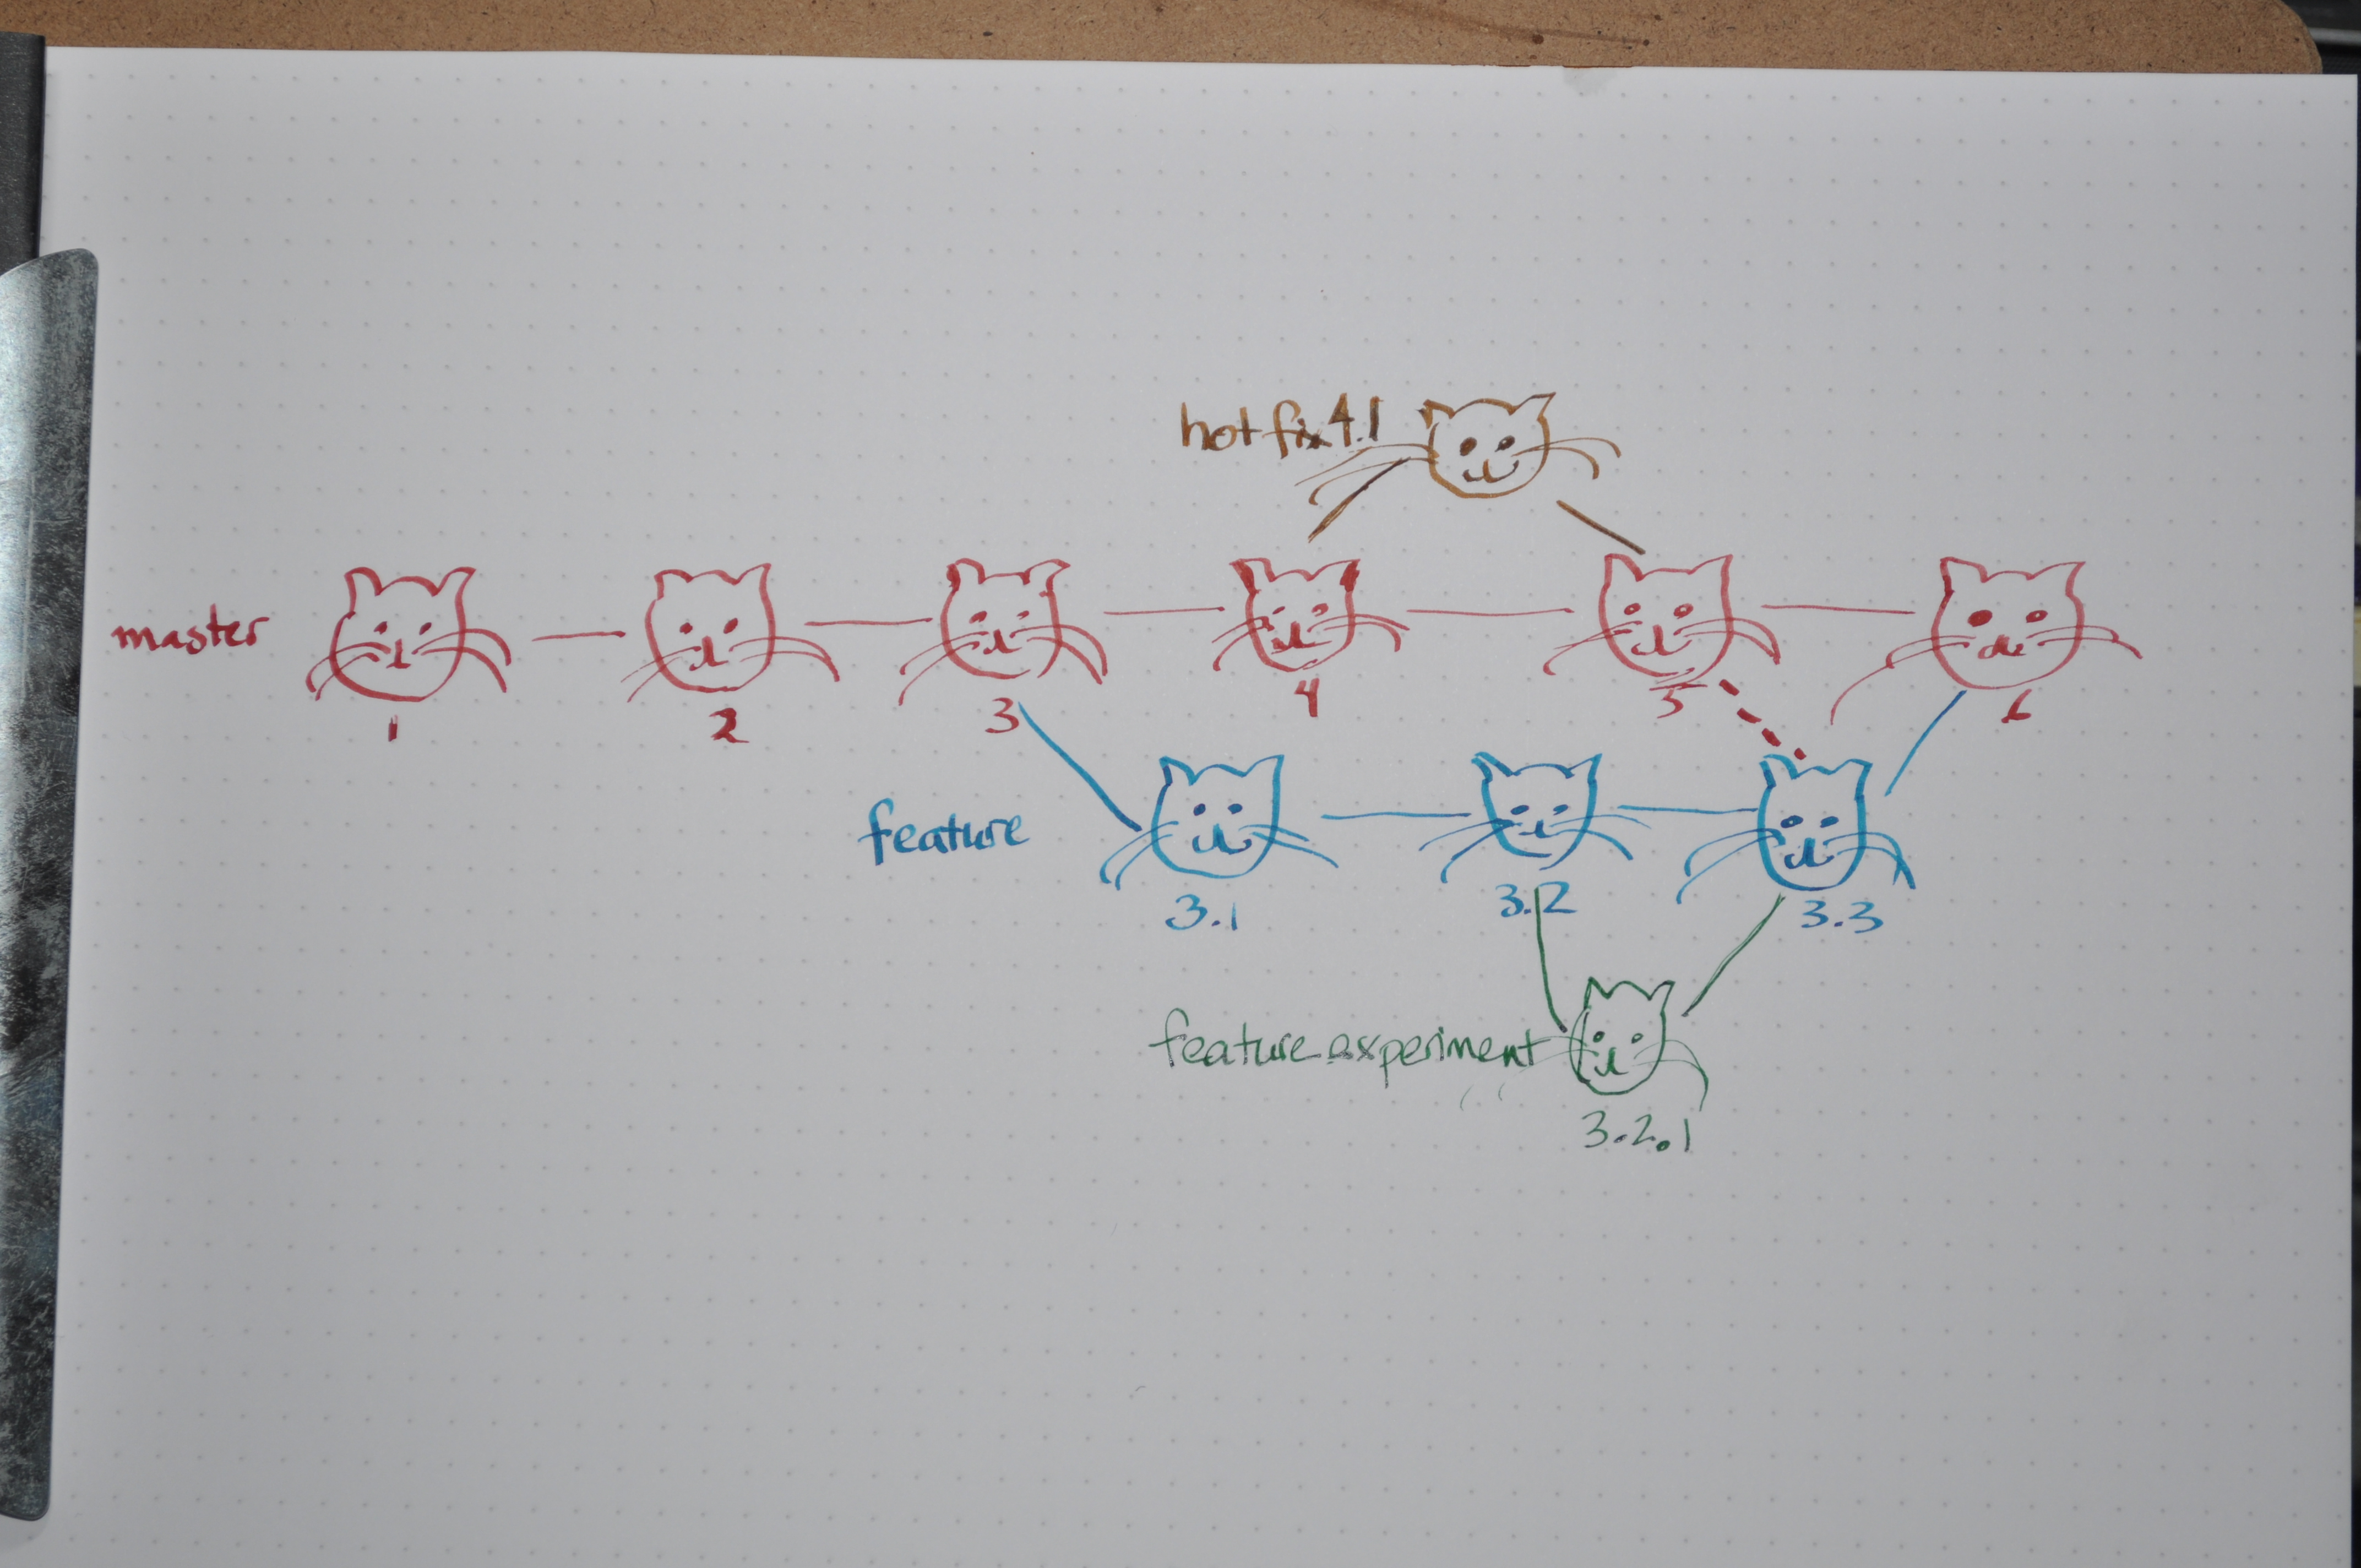 hotfix 4.1
master
1
2
3
4
5
6
feature
3.1
3.2
3.3
feature_experiment
3.2.1